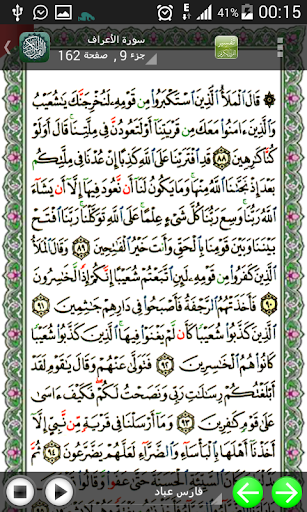 41% 00:15
سورة الأعراف
جزء 9 , صفحة 162
۞ قَالَ ٱلْمَلَأُ ٱلَّذِينَ ٱسْتَكْبَرُوا۟ مِن قَوْمِهِۦ لَنُخْرِجَنَّكَ يَـٰشُعَيْبُ
وَٱلَّذِينَ ءَامَنُوا۟ مَعَكَ مِن قَرْيَتِنَآ أَوْ لَتَعُودُنَّ فِى مِلَّتِنَا ۚ قَالَ أَوَلَوْ
كُنَّا كَـٰرِهِينَ ٨٨ قَدِ ٱفْتَرَيْنَا عَلَى ٱللَّهِ كَذِبًا إِنْ عُدْنَا فِى مِلَّتِكُم
بَعْدَ إِذْ نَجَّىٰنَا ٱللَّهُ مِنْهَا ۚ وَمَا يَكُونُ لَنَآ أَن نَّعُودَ فِيهَآ إِلَّآ أَن يَشَآءَ
ٱللَّهُ رَبُّنَا ۚ وَسِعَ رَبُّنَا كُلَّ شَىْءٍ عِلْمًا ۚ عَلَى ٱللَّهِ تَوَكَّلْنَا ۚ رَبَّنَا ٱفْتَحْ
بَيْنَنَا وَبَيْنَ قَوْمِنَا بِٱلْحَقِّ وَأَنتَ خَيْرُ ٱلْفَـٰتِحِينَ ٨٩ وَقَالَ ٱلْمَلَأُ
ٱلَّذِينَ كَفَرُوا۟ مِن قَوْمِهِۦ لَئِنِ ٱتَّبَعْتُمْ شُعَيْبًا إِنَّكُمْ إِذًا لَّخَـٰسِرُونَ
٩٠ فَأَخَذَتْهُمُ ٱلرَّجْفَةُ فَأَصْبَحُوا۟ فِى دَارِهِمْ جَـٰثِمِينَ ٩١
ٱلَّذِينَ كَذَّبُوا۟ شُعَيْبًا كَأَن لَّمْ يَغْنَوْا۟ فِيهَا ۚ ٱلَّذِينَ كَذَّبُوا۟ شُعَيْبًا
كَانُوا۟ هُمُ ٱلْخَـٰسِرِينَ ٩٢ فَتَوَلَّىٰ عَنْهُمْ وَقَالَ يَـٰقَوْمِ لَقَدْ
أَبْلَغْتُكُمْ رِسَـٰلَـٰتِ رَبِّى وَنَصَحْتُ لَكُمْ ۖ فَكَيْفَ ءَاسَىٰ
عَلَىٰ قَوْمٍ كَـٰفِرِينَ ٩٣ وَمَآ أَرْسَلْنَا فِى قَرْيَةٍ مِّن نَّبِىٍّ إِلَّآ
أَخَذْنَآ أَهْلَهَا بِٱلْبَأْسَآءِ وَٱلضَّرَّآءِ لَعَلَّهُمْ يَضَّرَّعُونَ ٩٤ ثُمَّ
بَدَّلْنَا مَكَانَ ٱلسَّيِّئَةِ ٱلْحَسَنَةَ حَتَّىٰ عَفَوا۟ وَّقَالُوا۟
فارس عباد